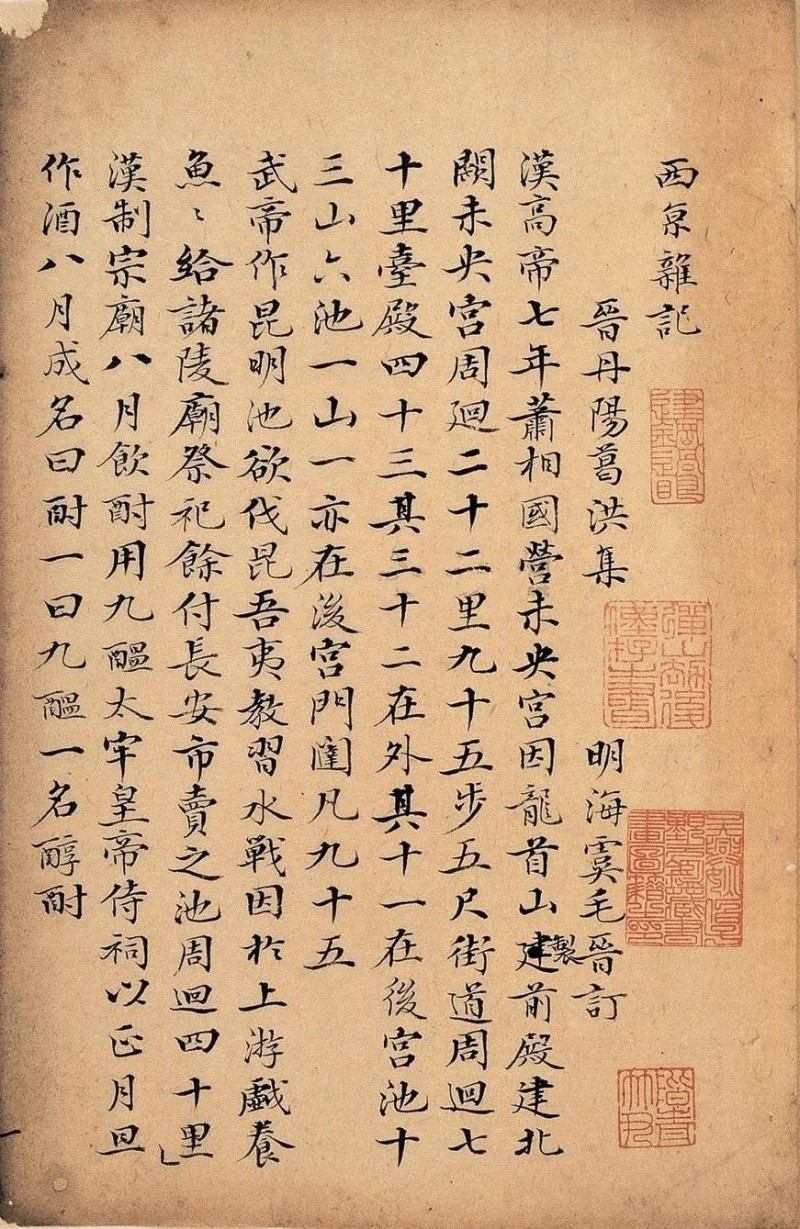 西京雜記
晉丹陽葛洪集　明海虞毛晉訂
漢高帝七年蕭相國營未央宮因龍首山建製前殿建北
闕未央宮周廻二十二里九十五步五尺街道周廻七
十里臺殿四十三其三十二在外其十一在後宮池十
三山六池一山一亦在後宮門闥凡九十五
武帝作昆明池欲伐昆吾夷教習水戰因於上游戲養
魚〻給諸陵廟祭祀餘付長安市賣之池周廻四十里
漢制宗廟八月飲酎用九醞太牢皇帝侍祠以正月旦
作酒八月成名曰酎一曰九醞一名醇酎